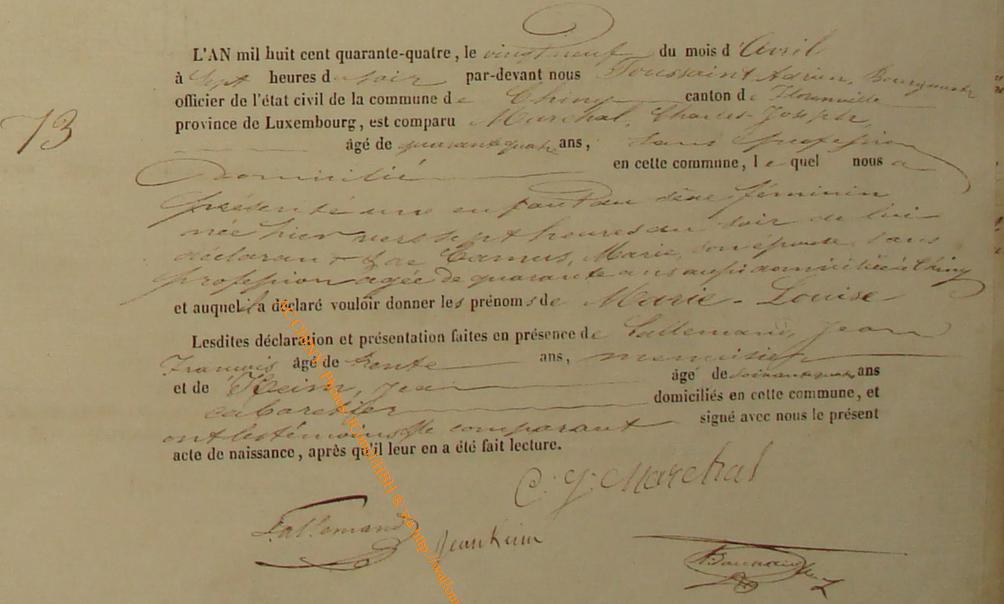 L'AN mil huit cent quarante-quatre, le vingt neuf du mois d'Avril
à Sept heures du soir par-devant nous Toussaint Adrien, Bourgmestre
officier de l'état civil de la commune de Chiny canton de Florenville
province de Luxembourg, est comparu Marchal, Charles-Joseph,
73
âgé de quarante quatre ans, sans profession
domicilié en cette commune, lequel nous a
présenté une enfant du sexe féminin
née hier vers sept heures du soir de lui
déclarant & de Camus, Marie, son épouse, sans
profession agée de quarante ans aussi domiciliée à Chiny
et auquel il a déclaré vouloir donner les prénoms de Marie-Louise
Lesdites déclaration et présentation faites en présence de Lallemand, Jean
François âgé de trente ans, menuisier
et de Keim, Jean âgé de soixante quatre ans
cabaretier domiciliés en cette commune, et
ont les témoins & le comparant signé avec nous le présent
acte de naissance, après qu'il leur en a été fait lecture.
C. J. Marchal
Lallemand Jean Keim
Toussaint